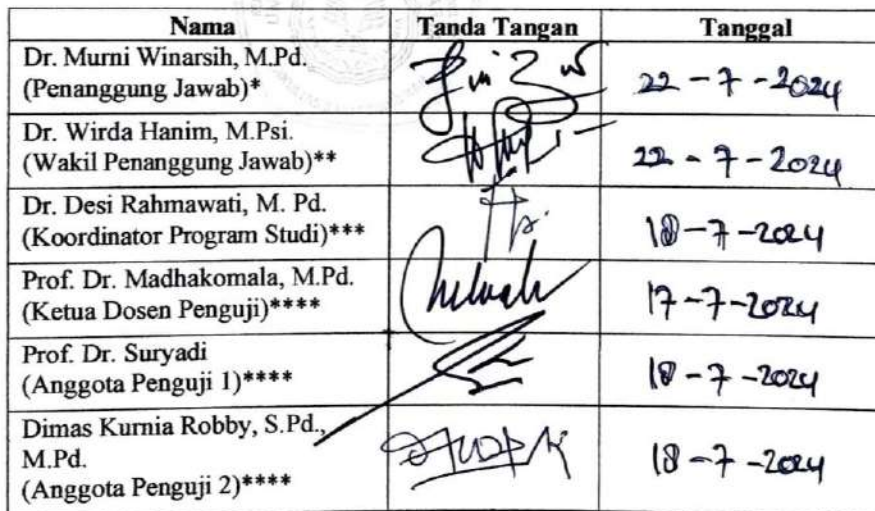 Nama Tanda Tangan Tanggal
Dr. Murni Winarsih, M.Pd.
(Penanggung Jawab)* 22 - 7 - 2024
Dr. Wirda Hanim, M.Psi.
(Wakil Penanggung Jawab)** 22 - 7 - 2024
Dr. Desi Rahmawati, M. Pd.
(Koordinator Program Studi)*** 18 - 7 - 2024
Prof. Dr. Madhakomala, M.Pd.
(Ketua Dosen Penguji)**** 17 - 7 - 2024
Prof. Dr. Suryadi
(Anggota Penguji 1)**** 18 - 7 - 2024
Dimas Kurnia Robby, S.Pd.,
M.Pd.
(Anggota Penguji 2)**** 18 - 7 - 2024